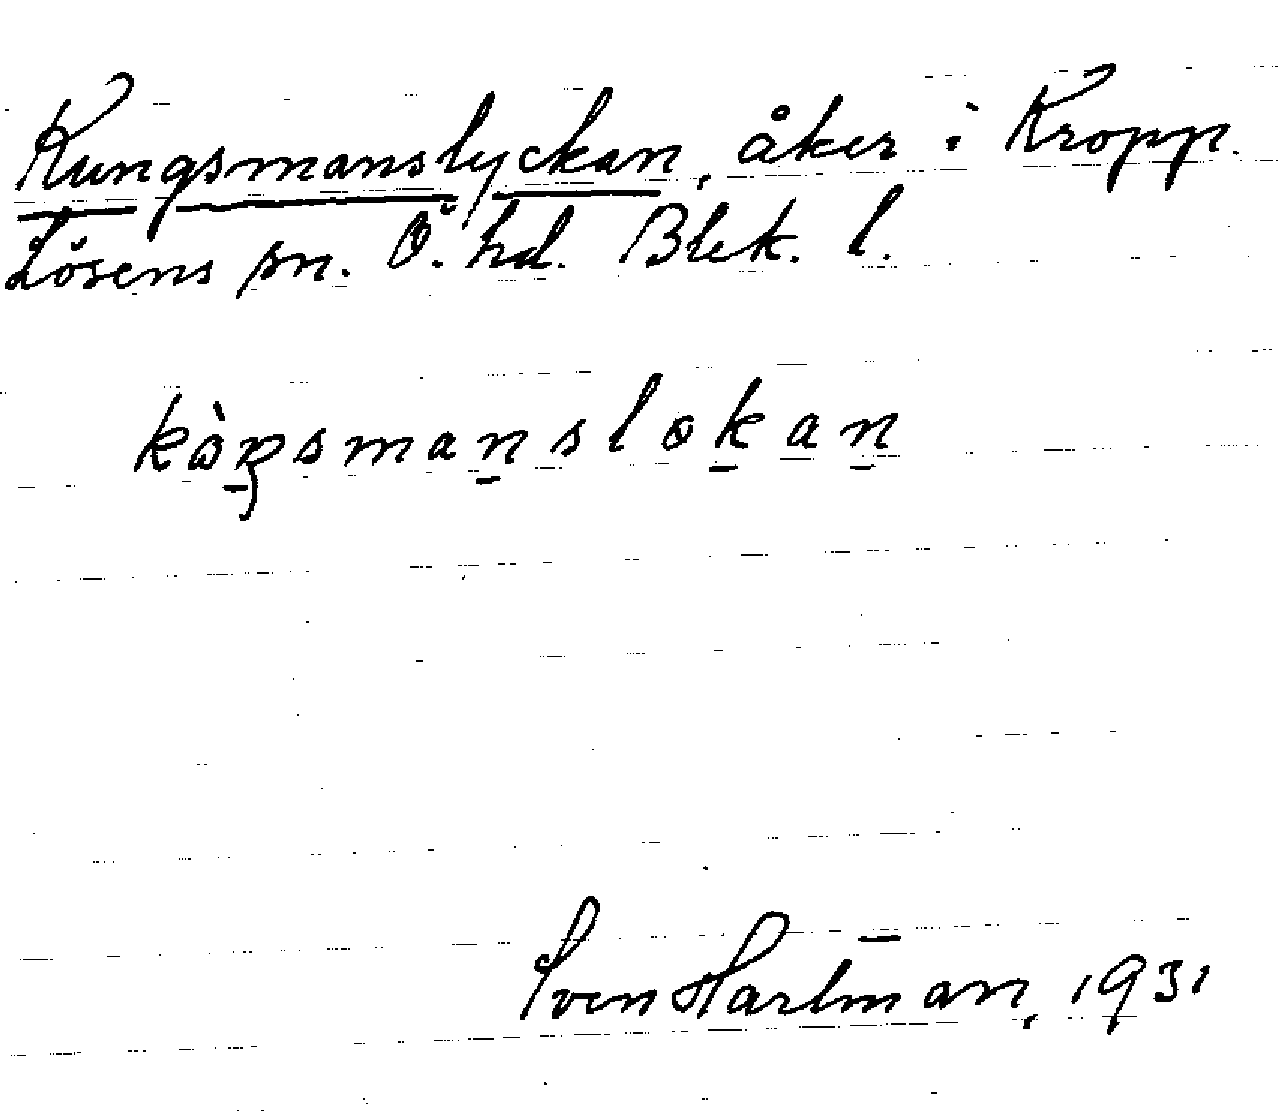 Kungsmanslyckan, åker i Kropp.
Lösens sn. Ö. hd. Blek. l.
kòŋsmanslokan
Sven Hartman, 1931